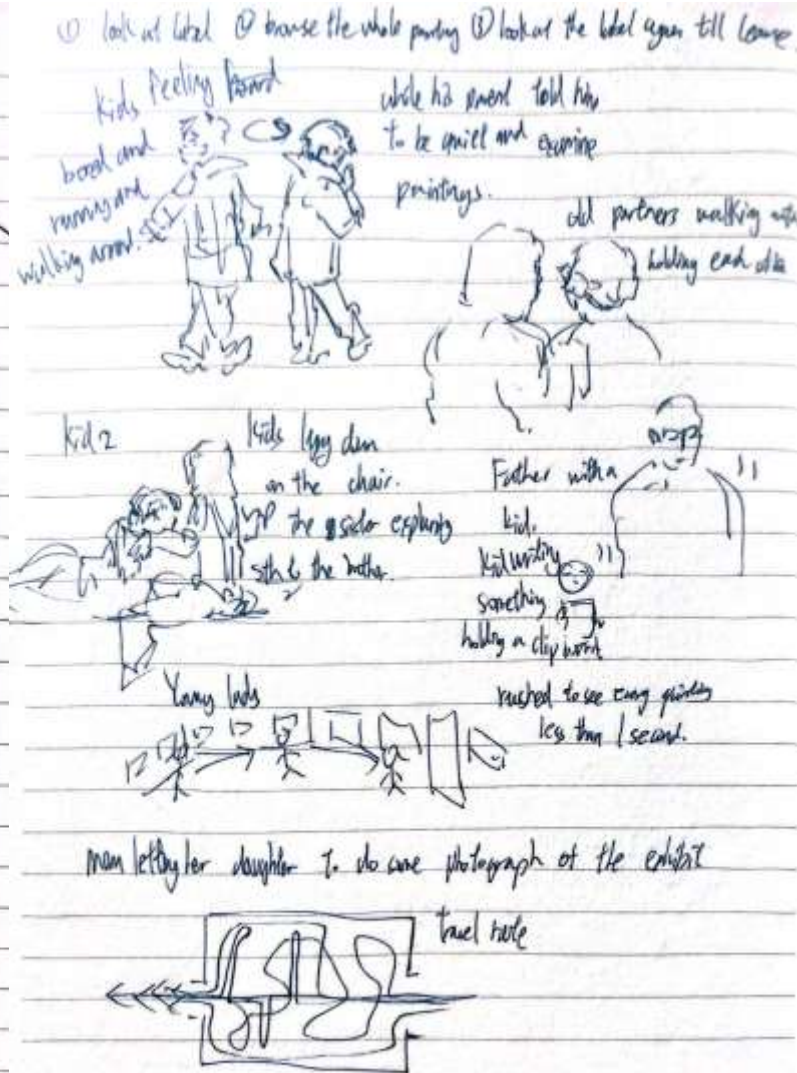 ① look at label ② browse the whole painting ③ look at the label again till leave
Kids feeling board
bored and
running and
walking arond.
while his parent told him
to be quiet and examine
paintings.
old partners walking
holding each othe
kid 2
Kids lying down
on the chair.
the sister explaning
sth to the brother.
Father with a
kid.
kid writing
something
holding a clip board
Young lady
rushed to see every painting
less than 1 second.
mom letting her daughter to do some photograph of the exhibit
travel route